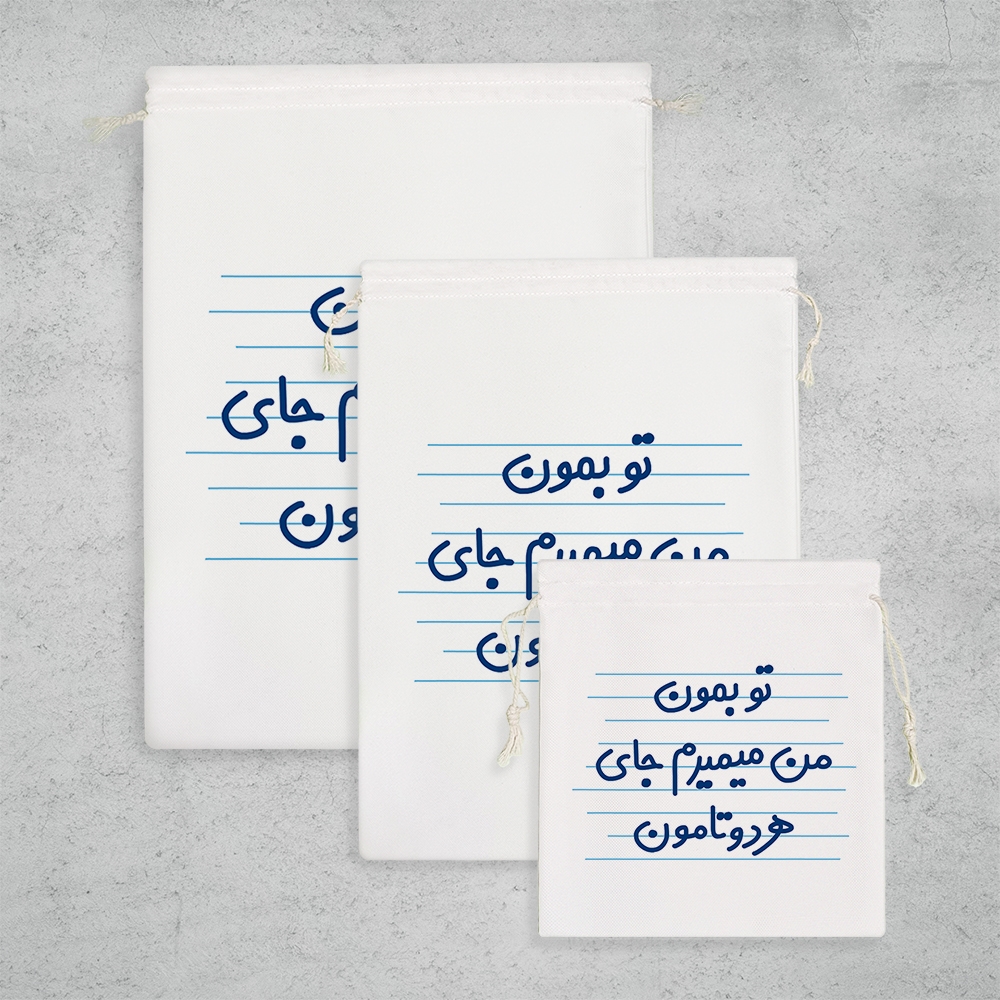 ن
م جای
ون
تو بمون
من میمیرم جای
ون
تو بمون
من میمیرم جای
هردوتامون